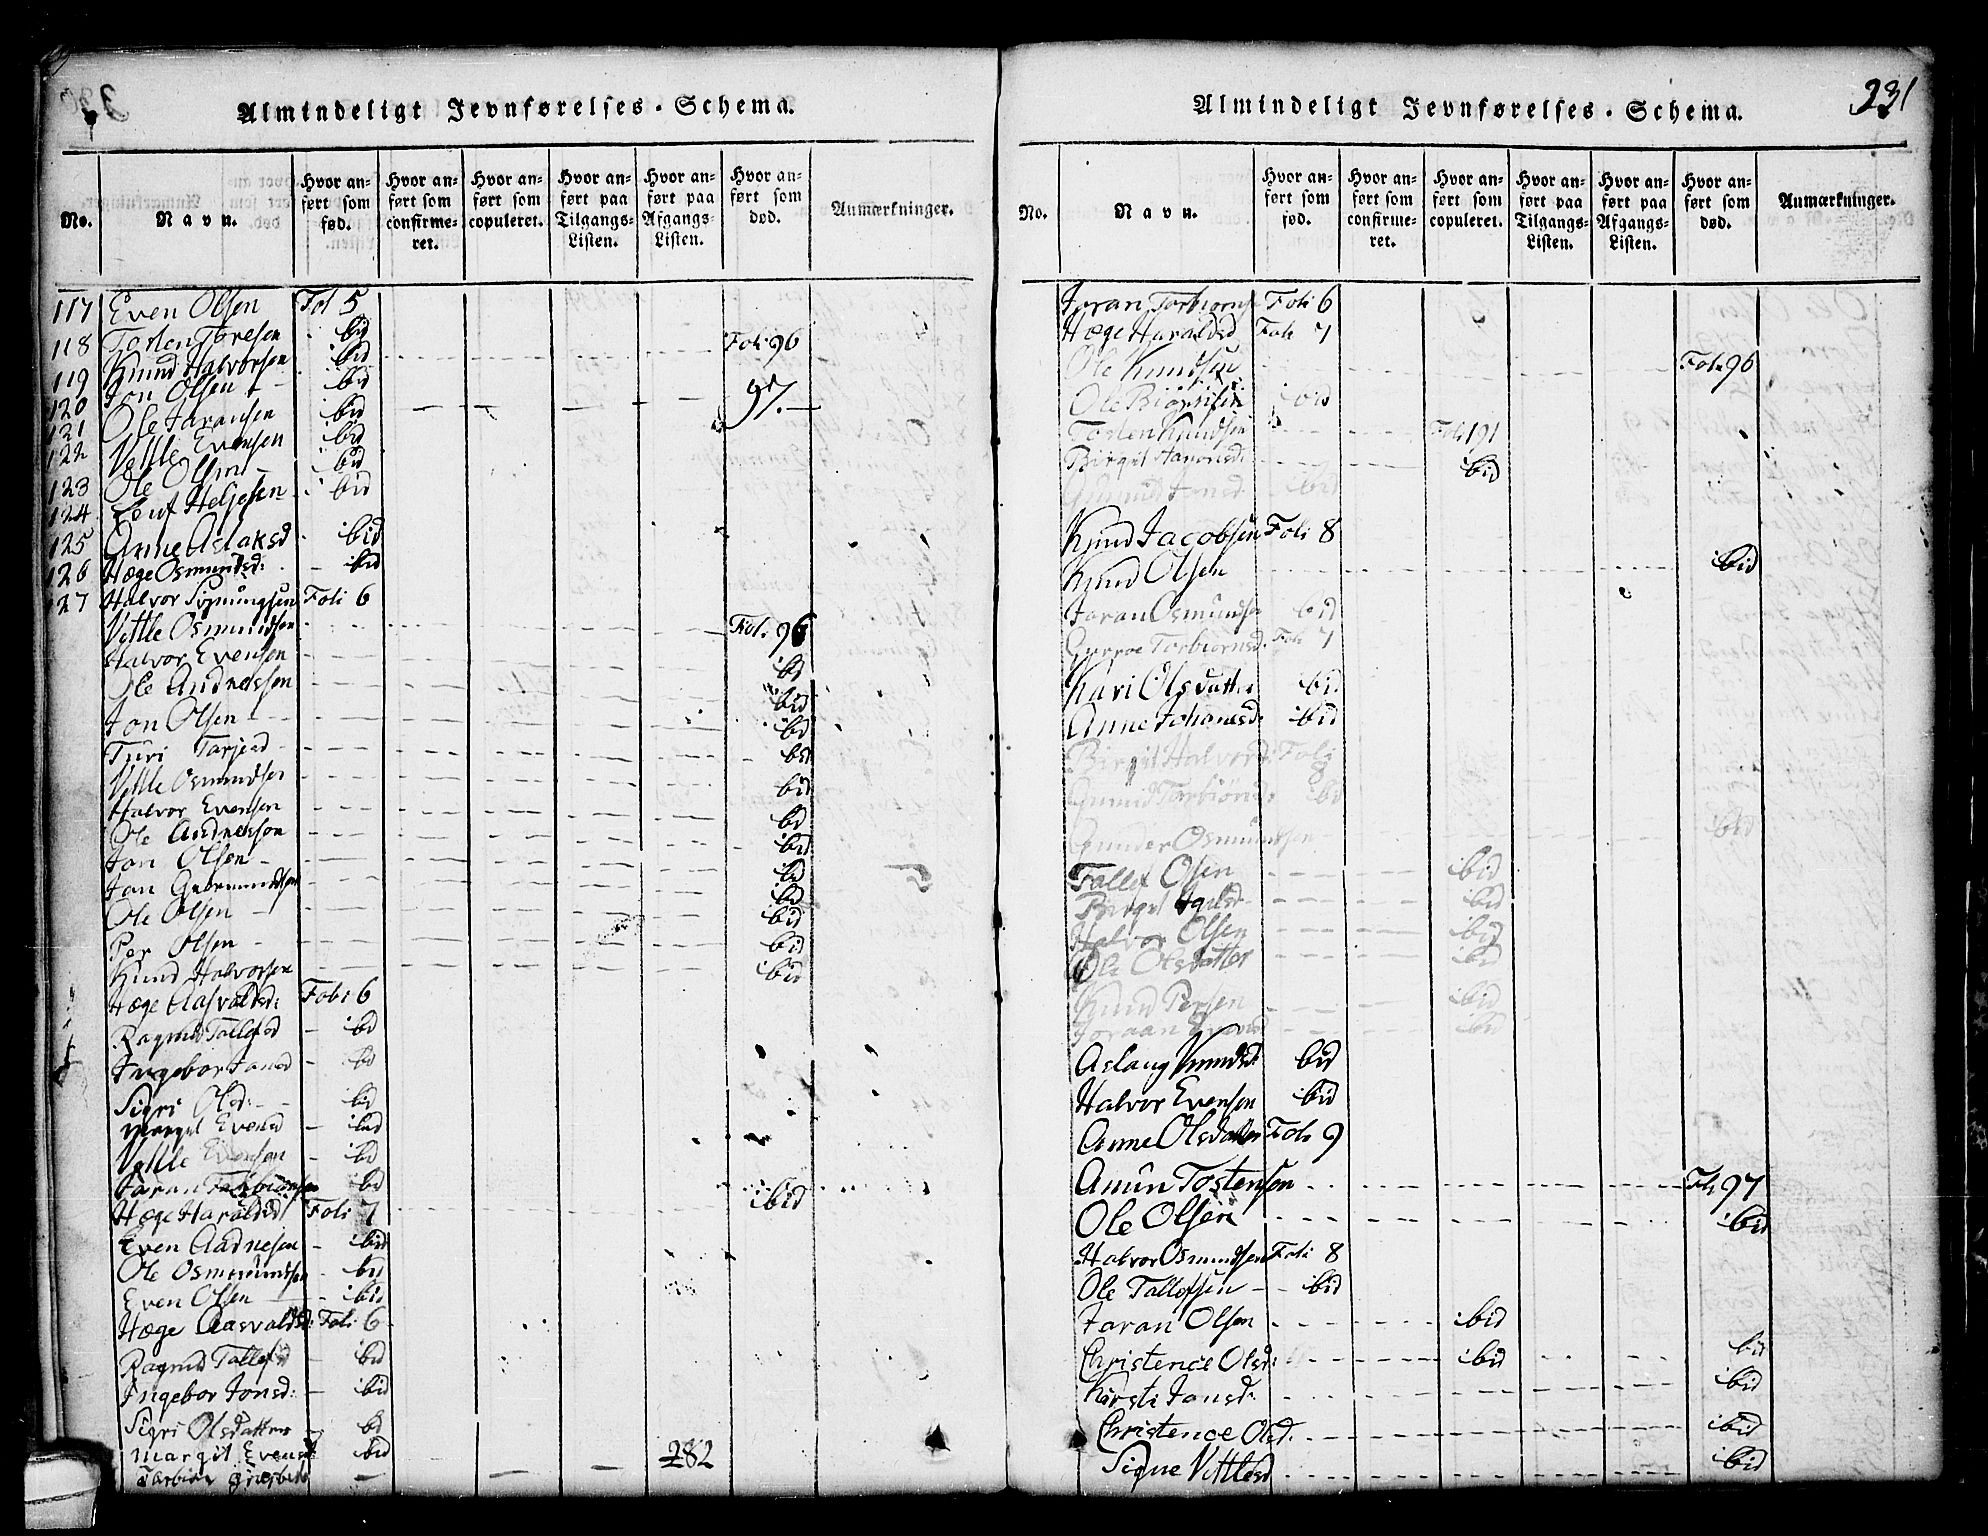 Almindeligt Jevnførelses-Schema.
No. Navn. Hvor anført som fød. Hvor anført som confirmeret. Hvor anført som copuleret. Hvor anført paa Tilgangs-Listen. Hvor anført paa Afgangs-Listen. Hvor anført som død. Anmærkninger.
117 Even Olsen Fol 5
118 Tosten Toresen ibid
119 Knud Halvorsen ibid Fol: 96
120 Jon Olsen ibid
121 Ole Jaransen ibid 97.
122 Vettle Evensen ibid
123 Ole Olsen ibid
124 Leuf Heljesen ibid
125 Anne Aslaksd ibid
126 Hæge Osmundsd: ibid
127 Halvor Sigmungsen Foli 6
Vettle Osmundsen Fol: 96
Halvor Evensen ibd
Ole Andressen ibid
Jon Olsen ibd
Turi Tarjesd ibd
Vettle Osmundsen ibid
Halvor Evensen ibd
Ole Andressen ibid
Jon Olsen ibd
Jon Guttormundsen ibid
Ole Olsen ibid
Per Olsen ibid
Knud Halvorsen ibid
Hæge Aasvaldsd: Foli 6
Ragnild Tallefsd ibd
Ingebor Jonsd ibd
Sigri Olsd: ibid
Margit Evensd ibid
Vettle Evensen ibd
Jaran Torbiornsen ibd
Hæge Haraldsd Foli 7 ibid
Even Aadnesen ibid
Ole Osmundsen ibid
Even Olsen ibid
Hæge Aasvaldsd: Foli 6
Ragnild Tallefsd ibid
Ingebor Jonsd: ibid
Sigri Olsdatter ibd
Margit Evensd ibid 282
Almindeligt Jevnførelses-Schema. 231
No. Navn. Hvor anført som fød. Hvor anført som confirmeret. Hvor anført som copuleret. Hvor anført paa Tilgangs-Listen. Hvor anført paa Afgangs-Listen. Hvor anført som død. Anmærkninger.
Joran Torbiorns Foli 6
Hæge Haraldsd Foli 7
Ole Knudsen Foli 96
Ole Biørnsen ibid
Tosten Knudsen Foli 191
Birgit Aaronsd: ibid
Gunild Jonsd ibid
Knud Jacobsen Foli 8
Knud Olsen ibid
Jaran Osmundsen ibid
Gurroe Torbiornsd. Foli 7
Kari Olsdatter ibid
Anne Johannesd: ibid
Birgit Halvorsd: Foli 8
Gunnild Torbiörnsd ibd
Gunder Osmundsen ibid
Tallef Olsen ibid
Birgit Ageisd ibid
Halvor Olsen ibid
Ole Olsdatter ibid
Knud Persen ibid
Joraan ibd
Aslaug Knudsd: ibid
Halvor Evensen ibid
Anne Olsdatter Foli 9
Amun Tostensen Foli 97
Ole Olsen ibid
Halvor Osmundsen Foli 8
Ole Tallefsen ibid
Jaran Olsen ibid
Christence Olsd: ibid ibid
Kirsti Jansd: ibid
Christence Olsd. ibid
Signe Vettlesd ibid